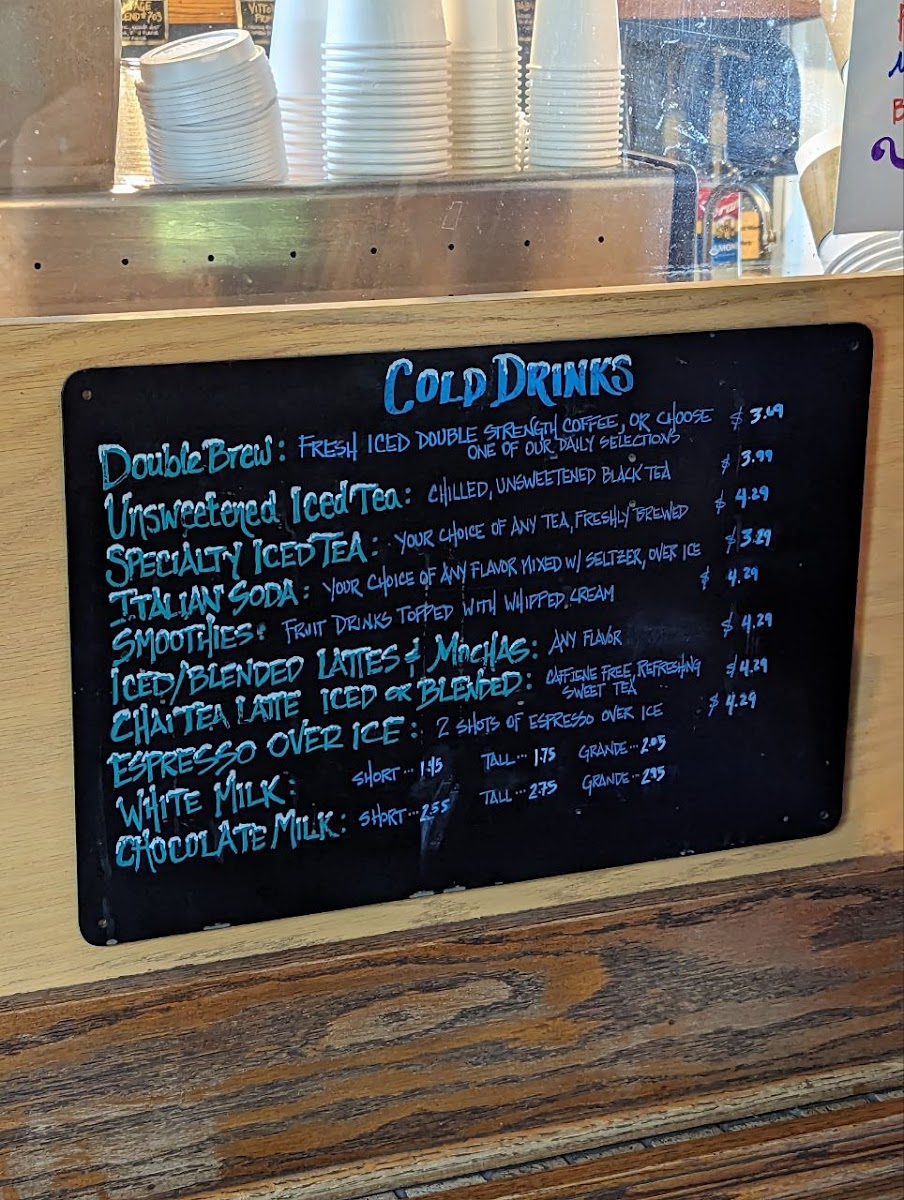 COLD DRINKS
Double Brew: FRESH ICED DOUBLE STRENGTH COFFEE, OR CHOOSE $3.69
ONE OF OUR DAILY SELECTIONS
Unsweetened Iced Tea: CHILLED, UNSWEETENED BLACK TEA $3.99
SPECIALTY ICED TEA: YOUR CHOICE OF ANY TEA, FRESHLY BREWED $4.29
ITALIAN SODA: YOUR CHOICE OF ANY FLAVOR MIXED W/ SELTZER, OVER ICE $3.29
SMOOTHIES: FRUIT DRINKS TOPPED WITH WHIPPED CREAM $4.29
ICED/BLENDED LATTES & MOCHAS: ANY FLAVOR $4.29
CHAI TEA LATTE ICED OR BLENDED: CAFFIENE FREE, REFRESHING $4.29
SWEET TEA
ESPRESSO OVER ICE: 2 SHOTS OF ESPRESSO OVER ICE $4.29
WHITE MILK: SHORT...1.45 TALL...1.75 GRANDE...2.05
CHOCOLATE MILK: SHORT...2.55 TALL...2.75 GRANDE...2.95